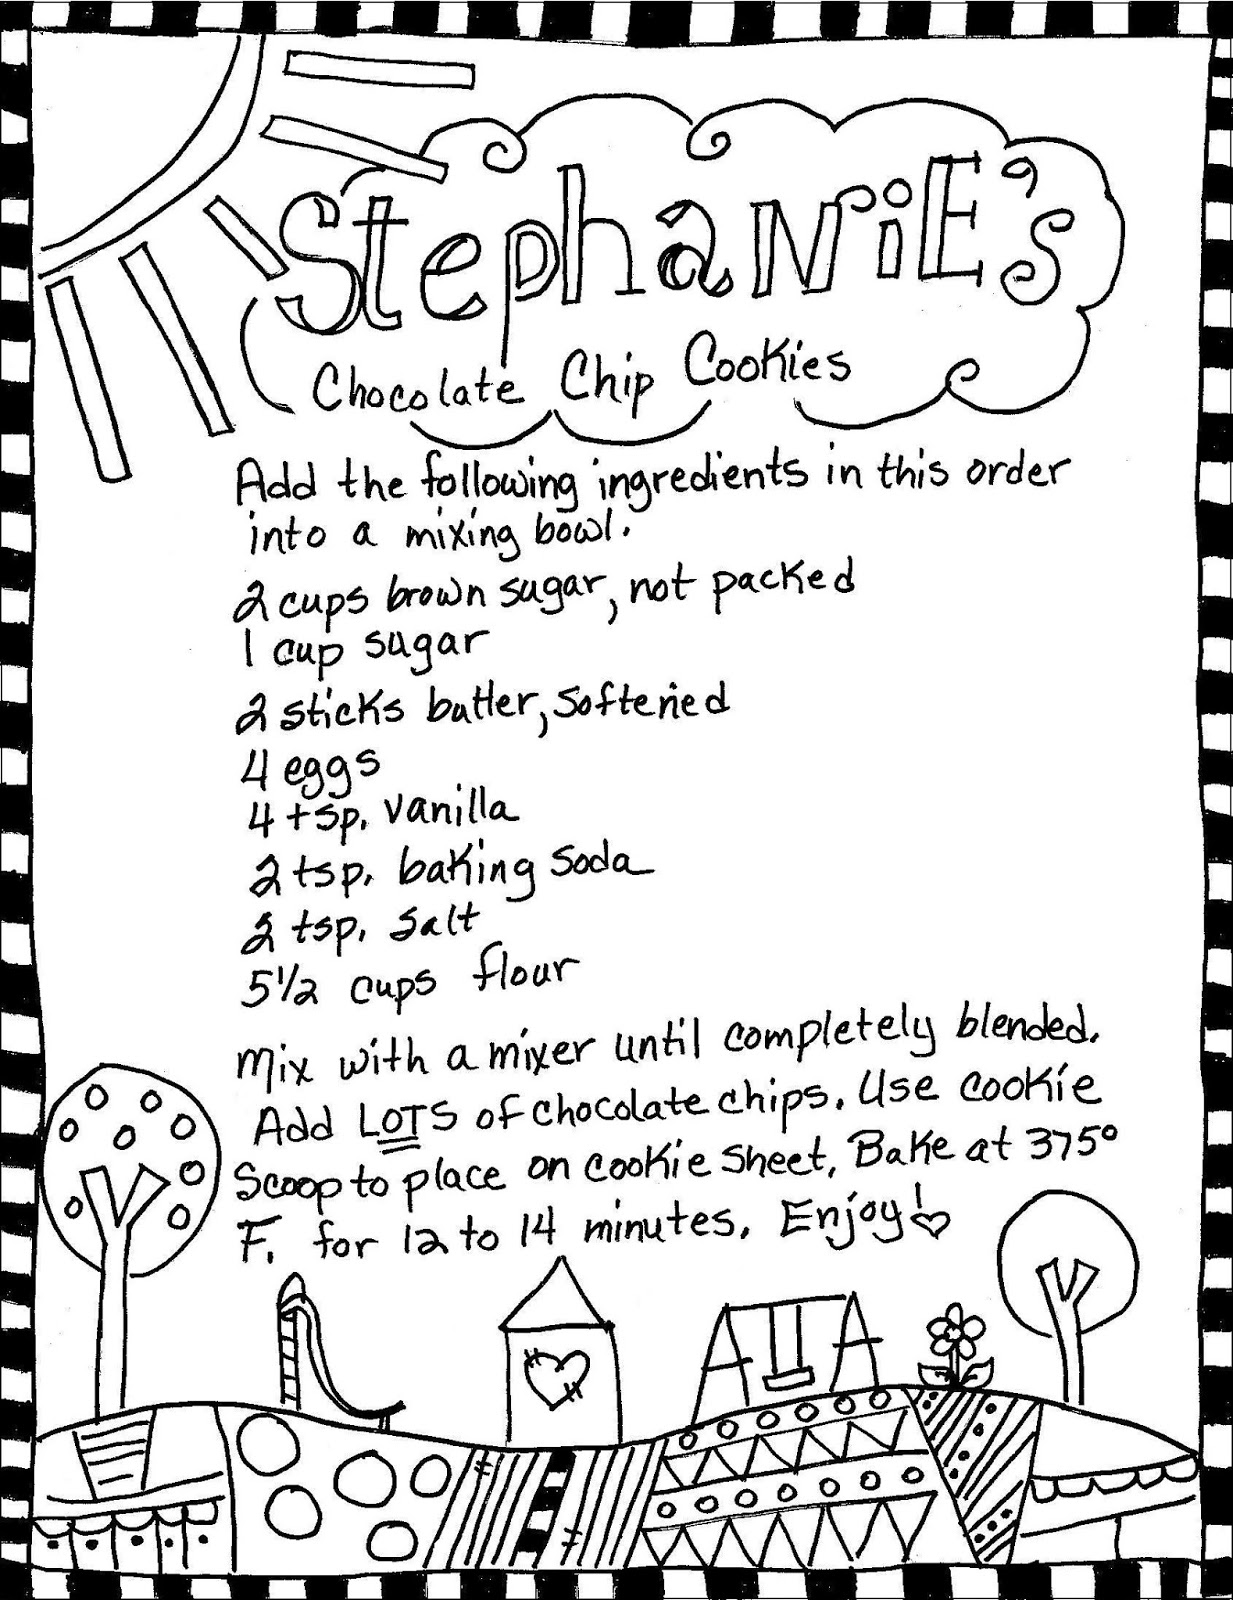 StephaniE's
Chocolate Chip Cookies
Add the following ingredients in this order
into a mixing bowl.
2 cups brown sugar, not packed
1 cup sugar
2 sticks butter, softened
4 eggs
4 tsp. vanilla
2 tsp. baking soda
2 tsp. salt
5 1/2 cups flour
Mix with a mixer until completely blended.
Add LOTS of chocolate chips. Use cookie
Scoop to place on cookie sheet. Bake at 375°
F. for 12 to 14 minutes. Enjoy!